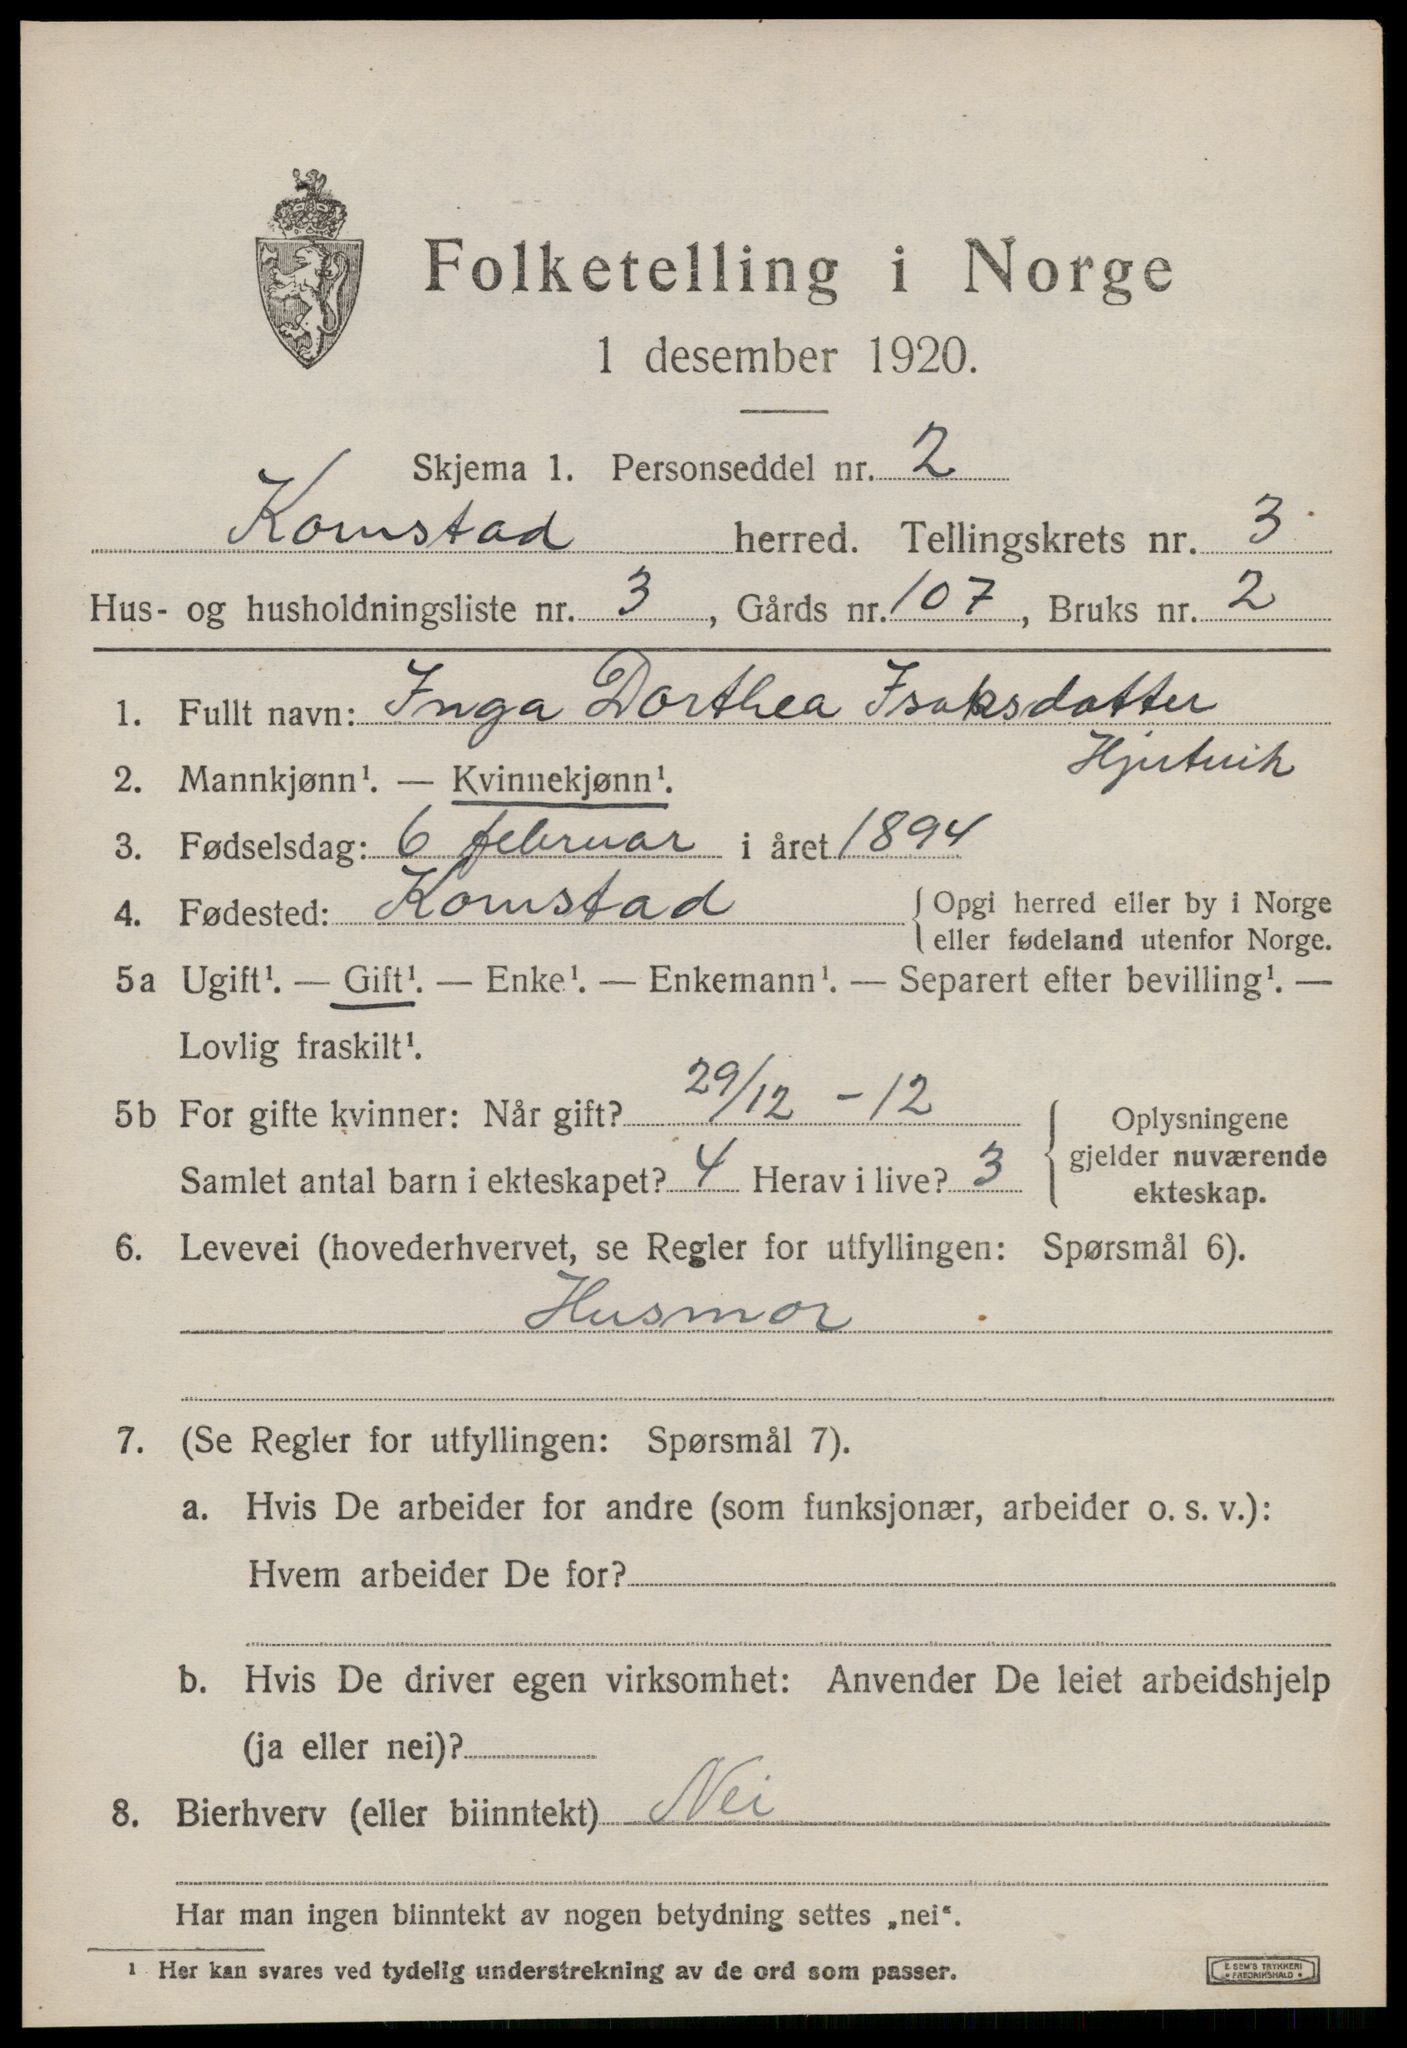 Folketelling i Norge
1 desember 1920.
Skjema 1. Personseddel nr. 2
Kornstad herred. Tellingskrets nr. 3
Hus- og husholdningsliste nr. 3, Gårds nr. 107, Bruks nr. 2
1. Fullt navn: Inga Dorthea Isaksdatter
2. Mannkjønn¹. — Kvinnekjønn¹.
3. Fødselsdag: 6 februar i året 1894
4. Fødested: Kornstad { Opgi herred eller by i Norge
eller fødeland utenfor Norge.
5a Ugift¹. — Gift¹. — Enke¹. — Enkemann¹. — Separert efter bevilling¹. —
Lovlig fraskilt¹.
5b For gifte kvinner: Når gift? 29/12 - 12
Samlet antal barn i ekteskapet? 4 Herav i live? 3
{ Oplysningene
gjelder nuværende
ekteskap.
6. Levevei (hovederhvervet, se Regler for utfyllingen: Spørsmål 6).
Husmor
7. (Se Regler for utfyllingen: Spørsmål 7).
a. Hvis De arbeider for andre (som funksjonær, arbeider o. s. v.):
Hvem arbeider De for?
b. Hvis De driver egen virksomhet: Anvender De leiet arbeidshjelp
(ja eller nei)?
8. Bierhverv (eller biinntekt) Nei
Har man ingen biinntekt av nogen betydning settes „nei“.
¹ Her kan svares ved tydelig understrekning av de ord som passer.
E. SEM'S TRYKKERI
• FREDRIKSHALD •